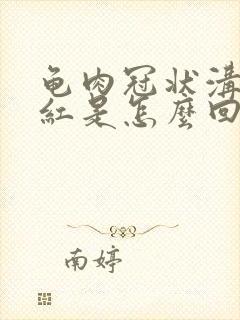 龟肉冠状溝
紅是怎麼回
南婷